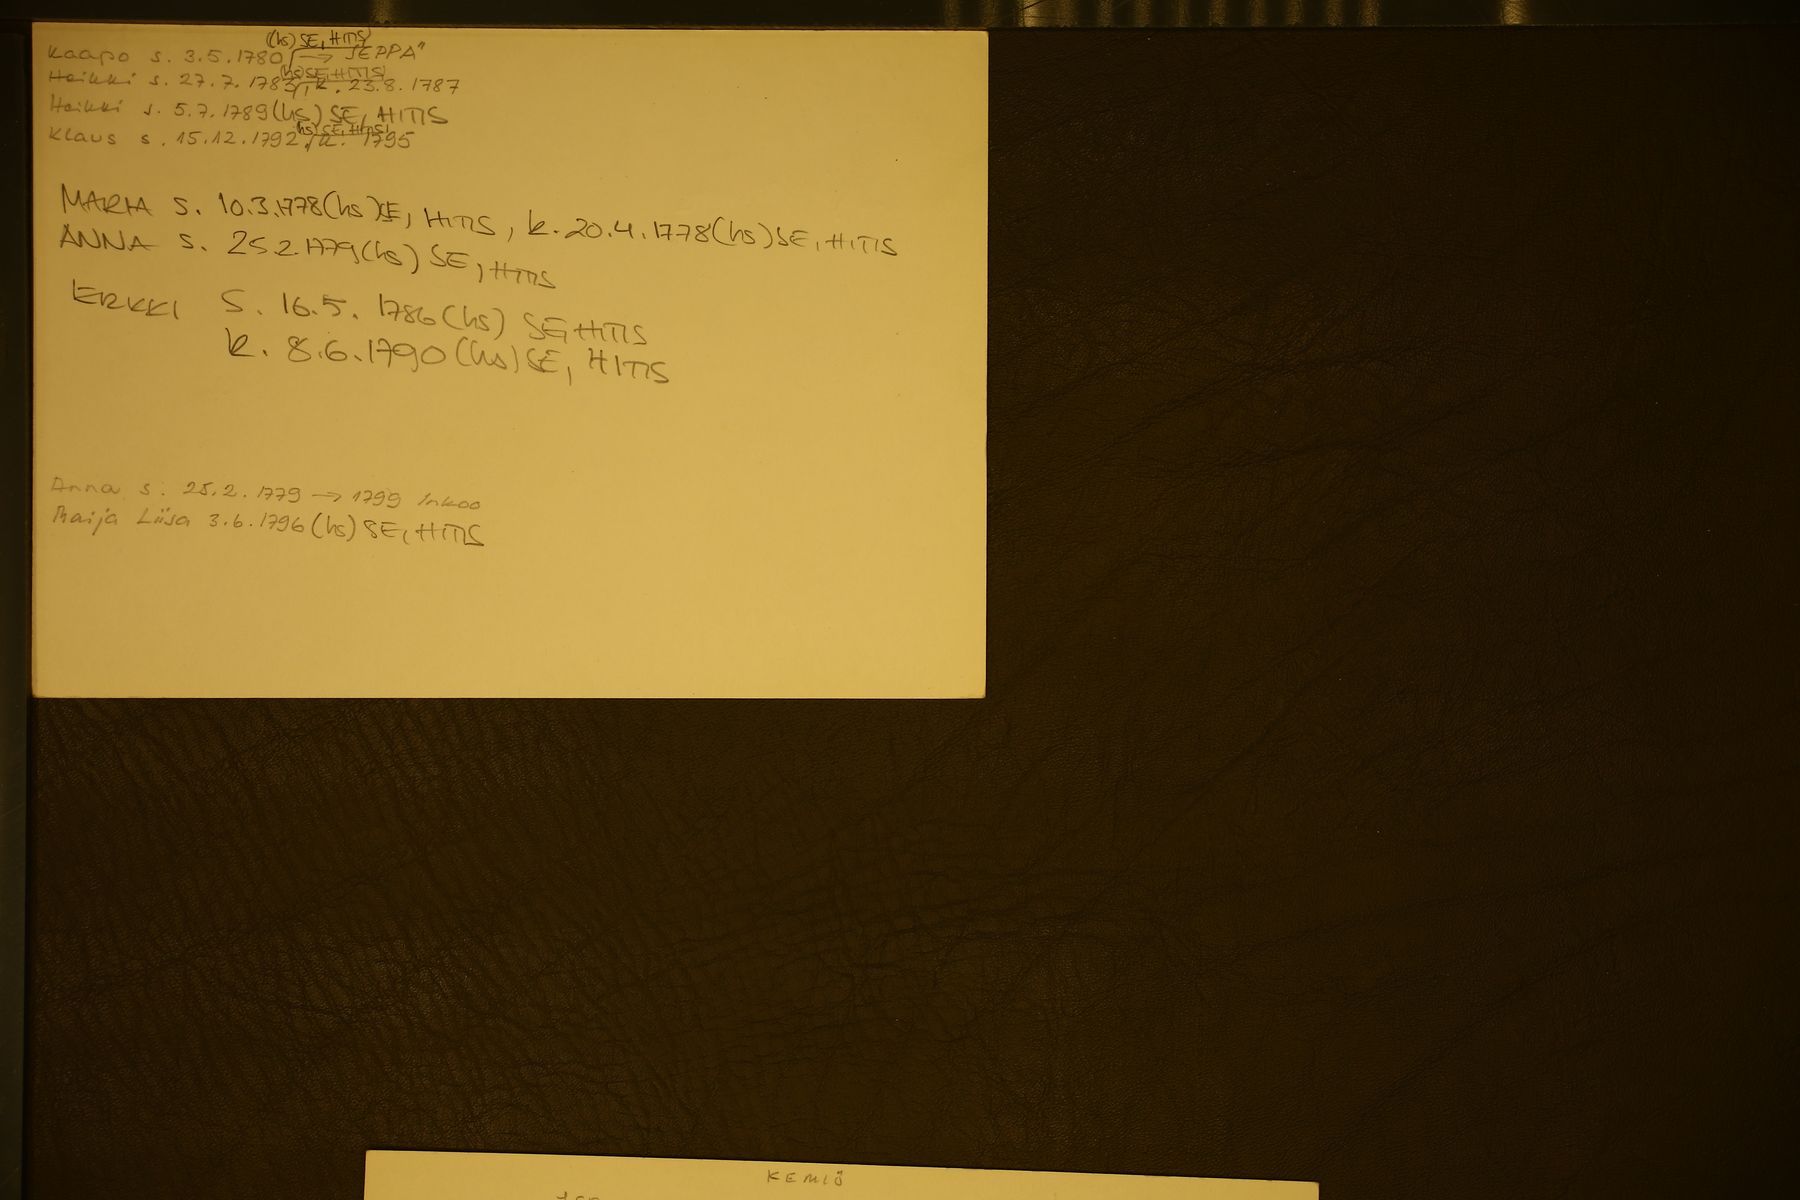 Kaapo s. 3.5.1780 (hs) SE, HITIS → SEPPÄ"
Heikki s. 27.7.1783 (hs) SE, HITIS, k. 23.8.1787
Heikki s. 5.7.1789 (hs) SE, HITIS
Klaus s. 15.12.1792 (hs) SE, HITIS, k. 1795
MARIA s. 10.3.1778 (hs) SE, HITIS, k. 20.4.1778 (hs) SE, HITIS
ANNA s. 25.2.1779 (hs) SE, HITIS
ERKKI s. 16.5.1786 (hs) SE, HITIS
k. 8.6.1790 (hs) SE, HITIS
Anna s. 25.2.1779 → 1799 Inkoo
Maija Liisa 3.6.1796 (hs) SE, HITIS
KEMIÖ